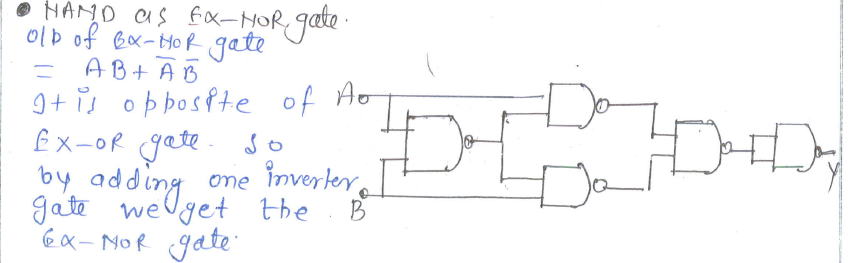 • NAND as EX-NOR gate.
O/P of EX-NOR gate
= AB + A̅ B̅
It is opposite of
EX-OR gate. So
by adding one inverter
gate we get the
EX-NOR gate.
A
B
Y